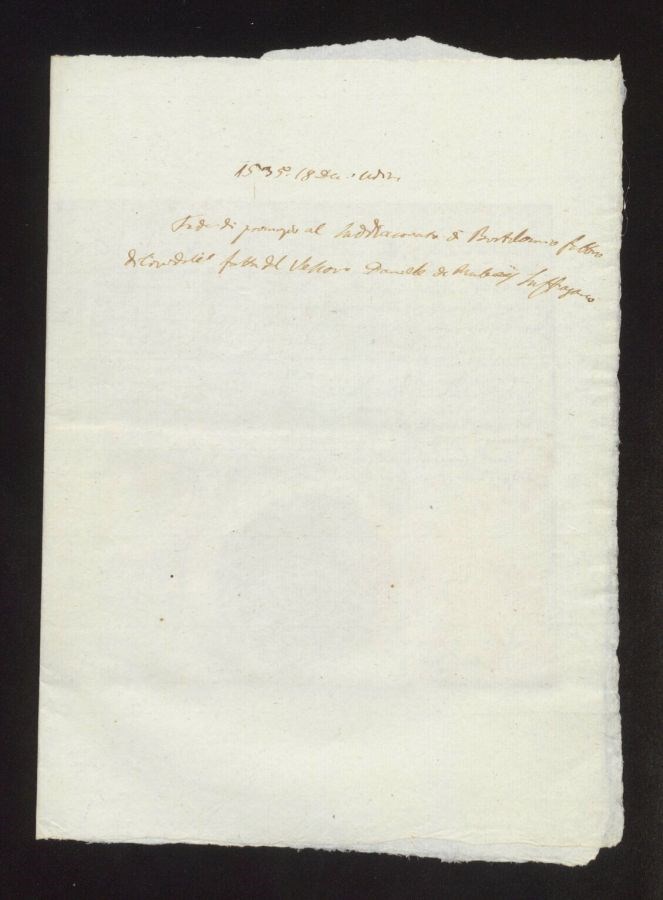 1535. 18 Dec. Udin.
Fede di promozion al suddiaconato di Bortolomio
di Cividale fatta dal Vescovo Daniele de Rubeis Suffraganeo